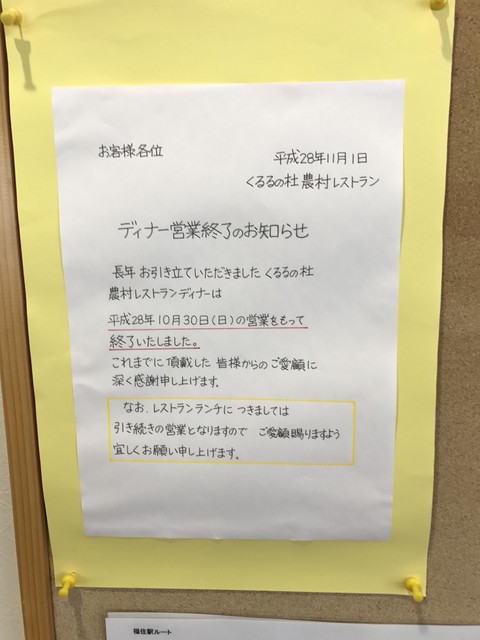 お客様各位
平成28年11月1日
くるるの杜 農村レストラン
ディナー営業終了のお知らせ
長年 お引き立ていただきました くるるの杜
農村レストランディナーは
平成28年10月30日(日)の営業をもって
終了いたしました。
これまでに頂戴した 皆様からのご愛顧に
深く感謝申し上げます。
なお、レストランランチに つきましては
引き続きの営業となりますので ご愛顧賜りますよう
宜しくお願い申し上げます。
福住駅ルート